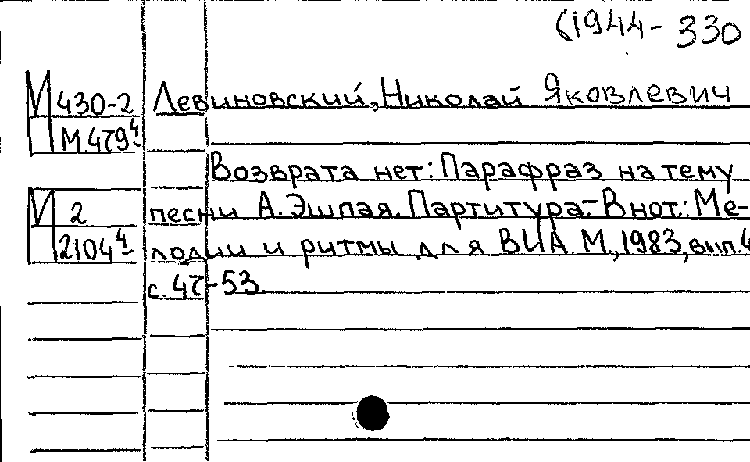 (1944- 330
И 430-2 Левиновский, Николай Яковлевич
М.479⁴
Возврата нет: Парафраз на тему
И 2 песни А. Эшпая. Партитура.- В нот.: Ме-
2104⁴ лодии и ритмы для ВИА М., 1983, вып. 4
с. 47-53